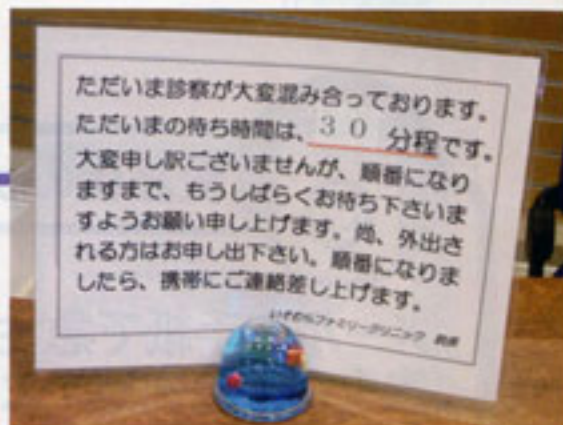 ただいま診察が大変混み合っております。
ただいまの待ち時間は、30 分程です。
大変申し訳ございませんが、順番になり
ますまで、もうしばらくお待ち下さいま
すようお願い申し上げます。尚、外出さ
れる方はお申し出下さい。順番になりま
したら、携帯にご連絡差し上げます。
ファミリークリニック